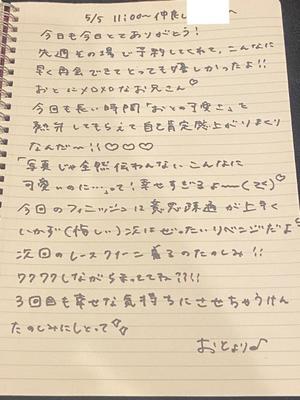 5/5 11:00〜 仲良し
今日も今日とてありがとう！
先週その場で予約してくれて、こんなに
早く再会できてとっても嬉しかったよ!!
おとにメロメロなお兄さん♡
今回も長い時間「おとの可愛さ」を
熱弁してもらえて自己肯定感上がりまくり
なんだ〜!! ♡♡♡
「写真じゃ全然伝わんない こんなに
可愛いのに…」って！幸せすぎるよ〜
今回のフィニッシュは意思疎通が上手く
いかず(悔しい) 次はぜったいリベンジだよ
次回のレースクイーン着るのたのしみ!!
ワクワクしながら待っててね??!!
3回目も幸せな気持ちにさせちゃうけん
たのしみにしとって♡
おとより♪